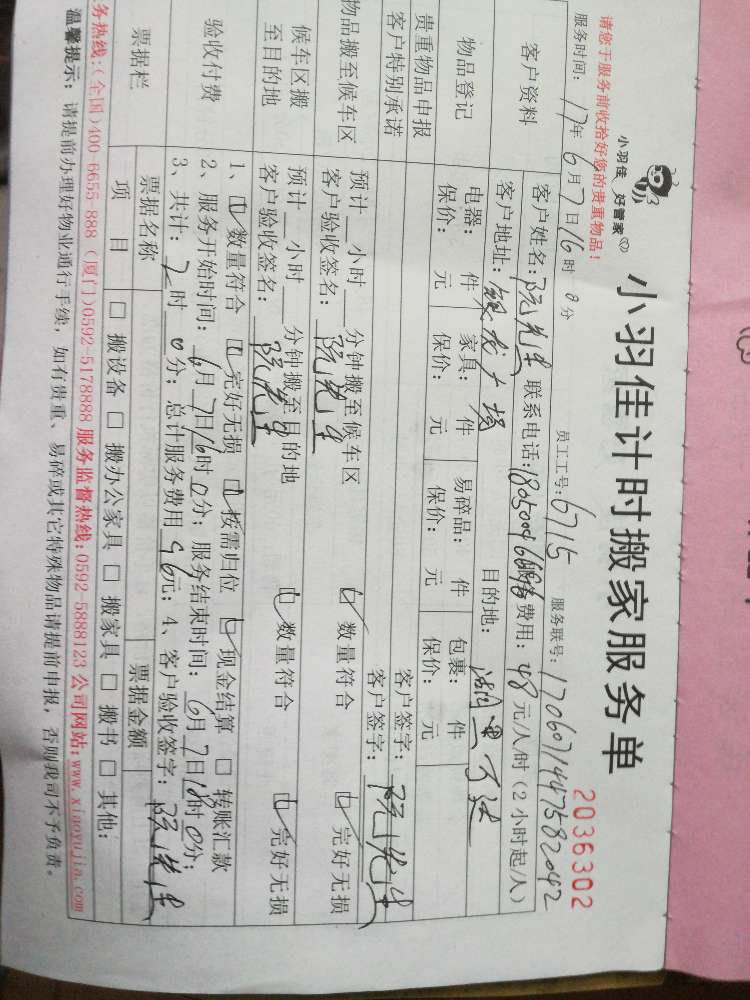 小羽佳 好管家
小羽佳计时搬家服务单
2036302
请您于服务前收拾好您的贵重物品！
服务时间：17年6月7日16时0分 员工工号：6715 服务联号：1706071447582042
客户资料 客户姓名：阮先生 联系电话：18050046696 服务费用：48元/人/时（2小时起/人）
客户地址：银龙广场 目的地：湖里万达
物品登记 电器： 件 家具： 件 易碎品： 件 包裹： 件
保价： 元 保价： 元 保价： 元 保价： 元
贵重物品申报 客户签字：阮先生
客户特别承诺 客户签字：
物品搬至候车区 预计__小时__分钟搬至候车区 数量符合 完好无损
客户验收签名：阮先生
候车区搬至目的地 预计__小时__分钟搬至目的地 数量符合 完好无损
客户验收签名：阮先生
验收付费 1、☑数量符合 ☑完好无损 ☑按需归位 ☑现金结算 □转账汇款
2、服务开始时间：6月7日16时0分；服务结束时间：6月7日18时0分；
3、共计：2时0分；总计服务费用96元；4、客户验收签字：阮先生
票据栏 票据名称 票据金额
项 目 □搬设备 □搬办公家具 □搬家具 □搬书 □其他：
务热线：(全国)400-6655-888 (厦门)0592-5178888 服务监督热线：0592-5888123 公司网站：www.xiaoyujia.com
温馨提示：请提前办理好物业通行手续，如有贵重、易碎或其它特殊物品请提前申报，否则我司不予负责。